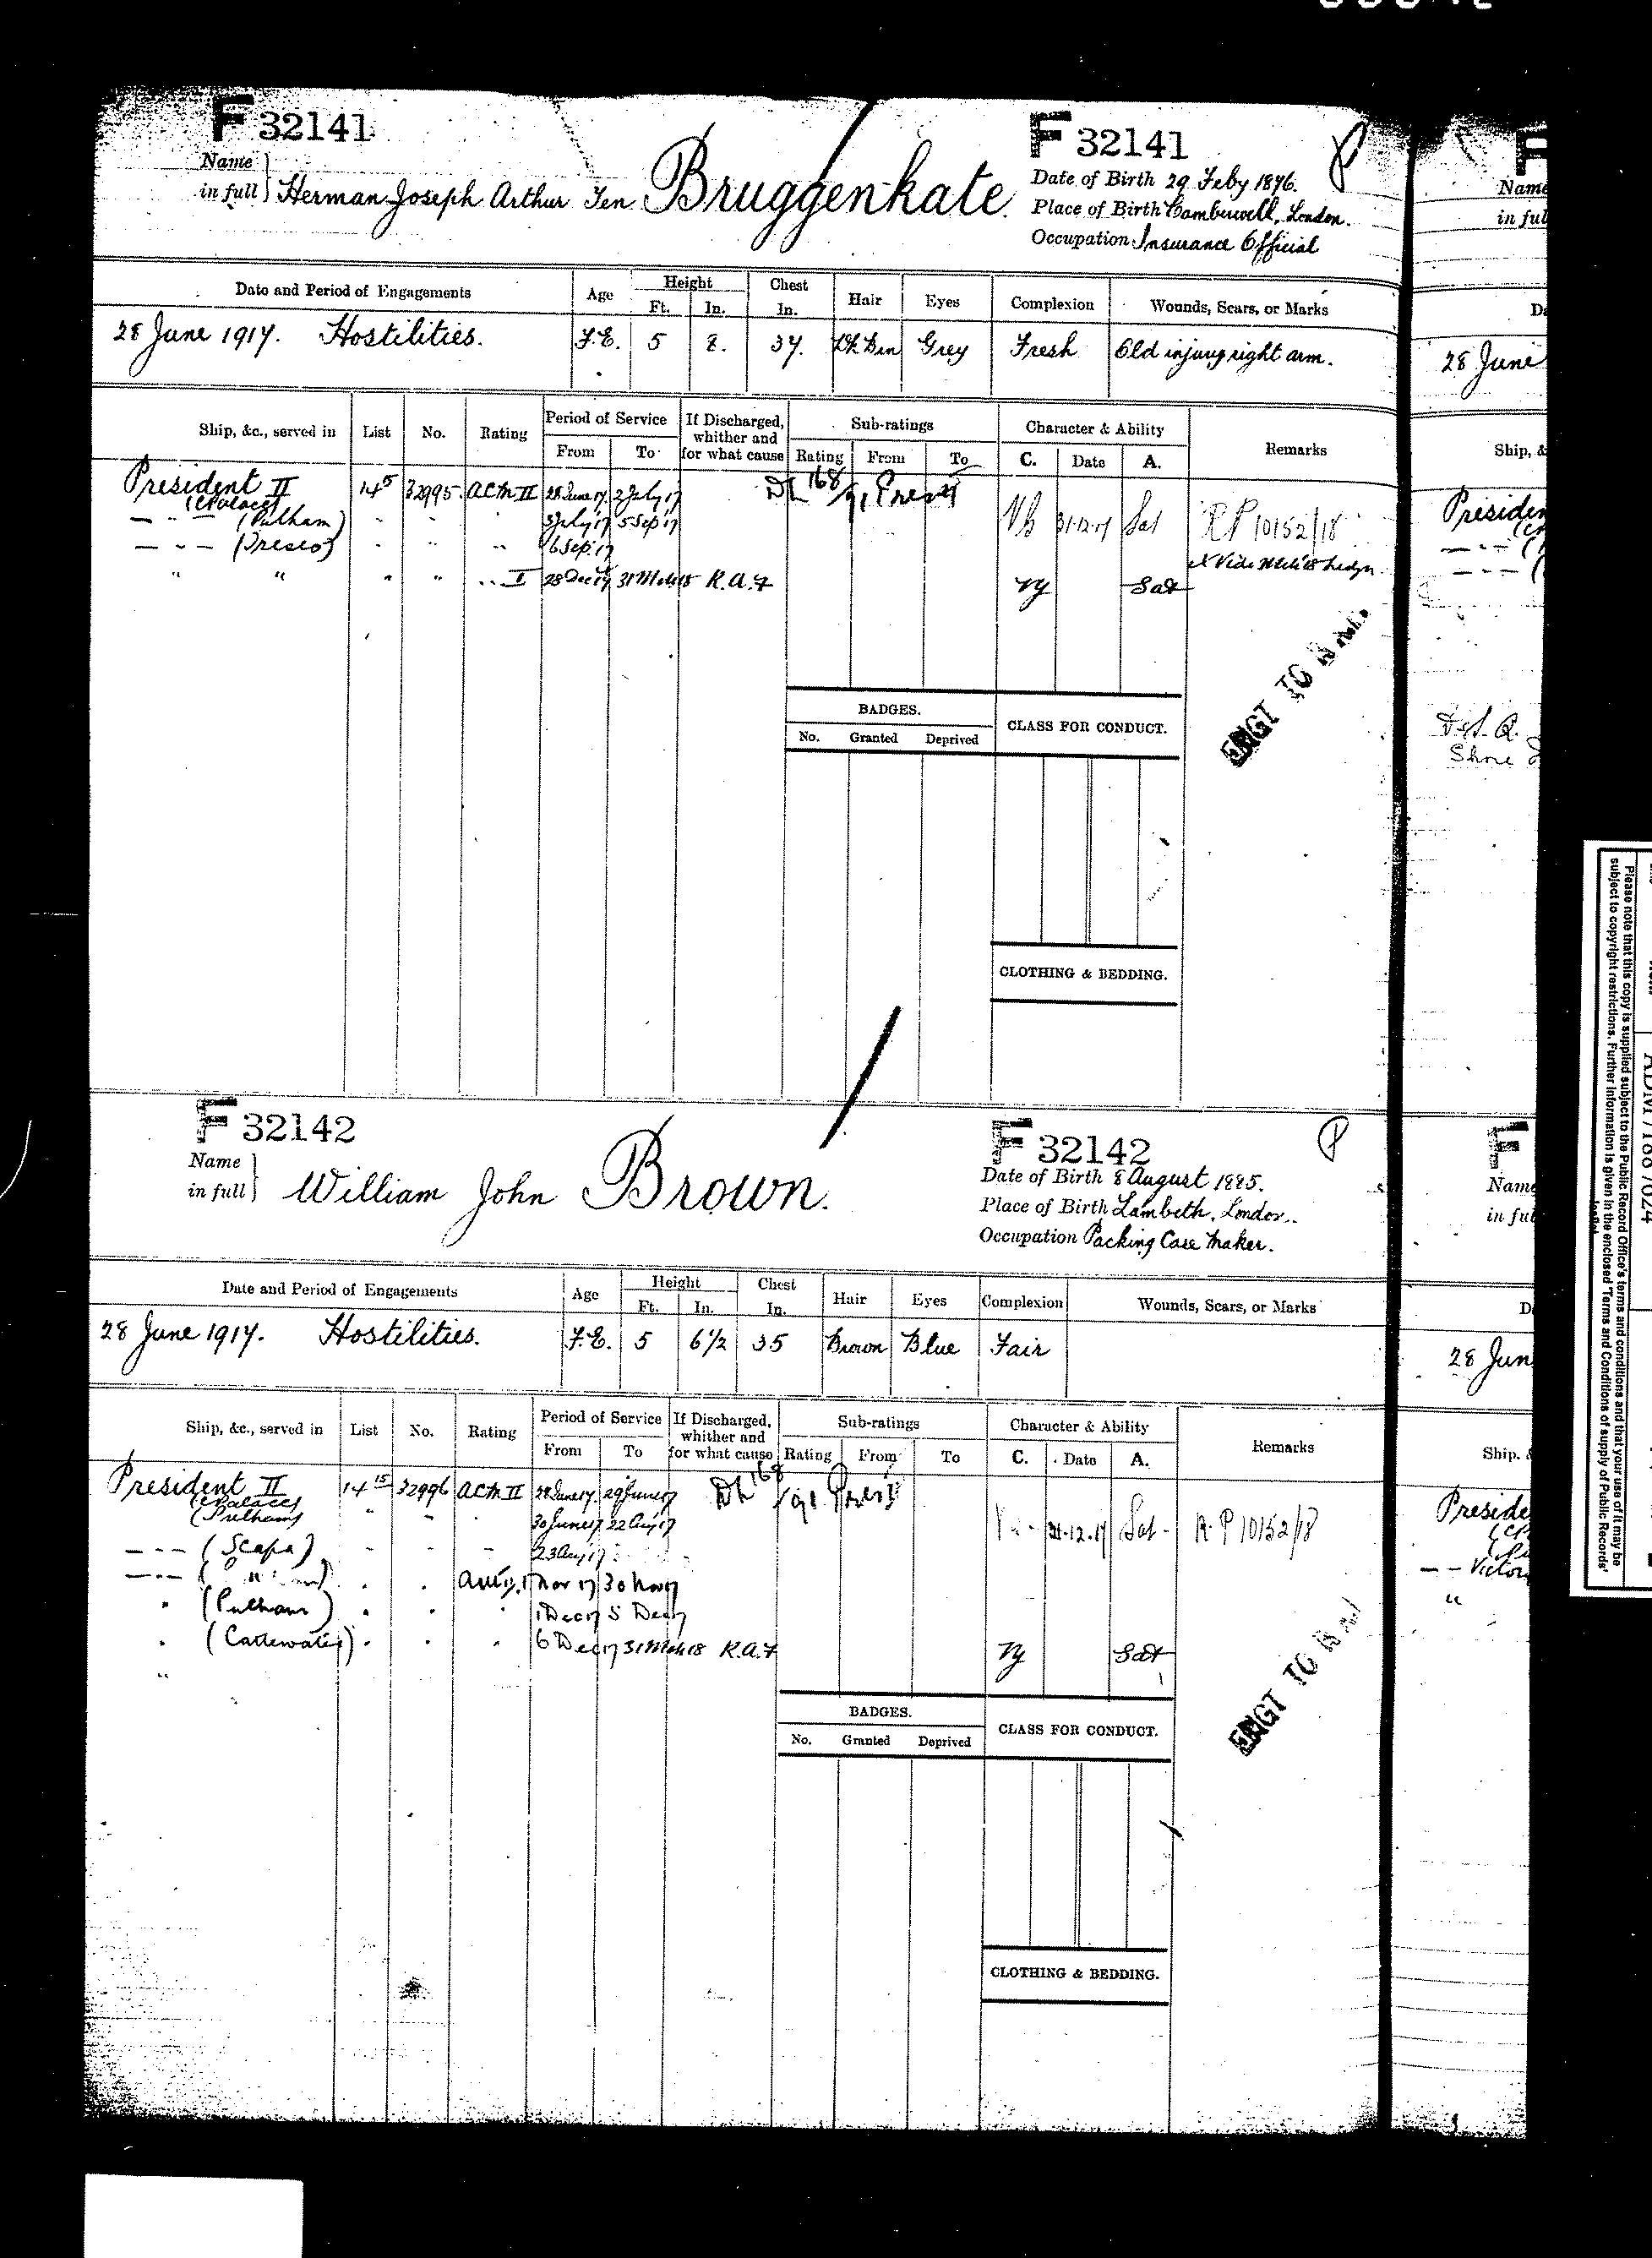 F 32141 F 32141
Name in full } Herman Joseph Arthur Ten Bruggenkate.
Date of Birth 29 Feby 1876.
Place of Birth Camberwell, London.
Occupation Insurance Official
Date and Period of Engagements Age Height Ft. In. Chest In. Hair Eyes Complexion Wounds, Scars, or Marks
28 June 1917. Hostilities. F.E. 5 8. 37. Dk Brn Grey Fresh Old injury right arm.
Ship, &c., served in List No. Rating Period of Service From To If Discharged, whither and for what cause Sub-ratings Rating From To Character & Ability C. Date A. Remarks
President II 14 5 32995 ACM II 28 June 17. 2 July 17 DL 168
(C Palace)
— " — (Pulham) " " " 3 July 17 5 Sep 17 VG 31-12-17 Sat RP 10152/18
— " — " " " 6 Sep 17
" " " " " I 28 Dec 17 31 Mch 18 R.A.F VG Sat
ENGT TO
BADGES.
No. Granted Deprived
CLASS FOR CONDUCT.
CLOTHING & BEDDING.
F 32142 F 32142
Name in full } William John Brown.
Date of Birth 8 August 1885.
Place of Birth Lambeth, London.
Occupation Packing Case Maker.
Date and Period of Engagements Age Height Ft. In. Chest In. Hair Eyes Complexion Wounds, Scars, or Marks
28 June 1917. Hostilities. F.E. 5 6 1/2 35 Brown Blue Fair
Ship, &c., served in List No. Rating Period of Service From To If Discharged, whither and for what cause Sub-ratings Rating From To Character & Ability C. Date A. Remarks
President II 14 15 32996 ACM II 28 June 17. 29 June 17 DL 168
(C Palace)
(Pulham) " " " 30 June 17 22 Aug 17 31-12-17 Sat R.P 10152/18
— " — (Scapa) " " " 23 Aug 17
— " — 1 Nov 17 30 Nov 17
" (Pulham) " " " 1 Dec 17 5 Dec 17
" (Cattewater) " " " 6 Dec 17 31 Mch 18 R.A.F VG Sat
"
ENGT TO
BADGES.
No. Granted Deprived
CLASS FOR CONDUCT.
CLOTHING & BEDDING.
F
Name
in ful
28 June
Ship, &
Presiden
Shore
F
Name
in ful
28 Jun
Ship, &
Preside
— — Victor
"
Please note that this copy is supplied subject to the Public Record Office's terms and conditions and that your use of it may be
subject to copyright restrictions. Further information is given in the enclosed 'Terms and Conditions of supply of Public Records'